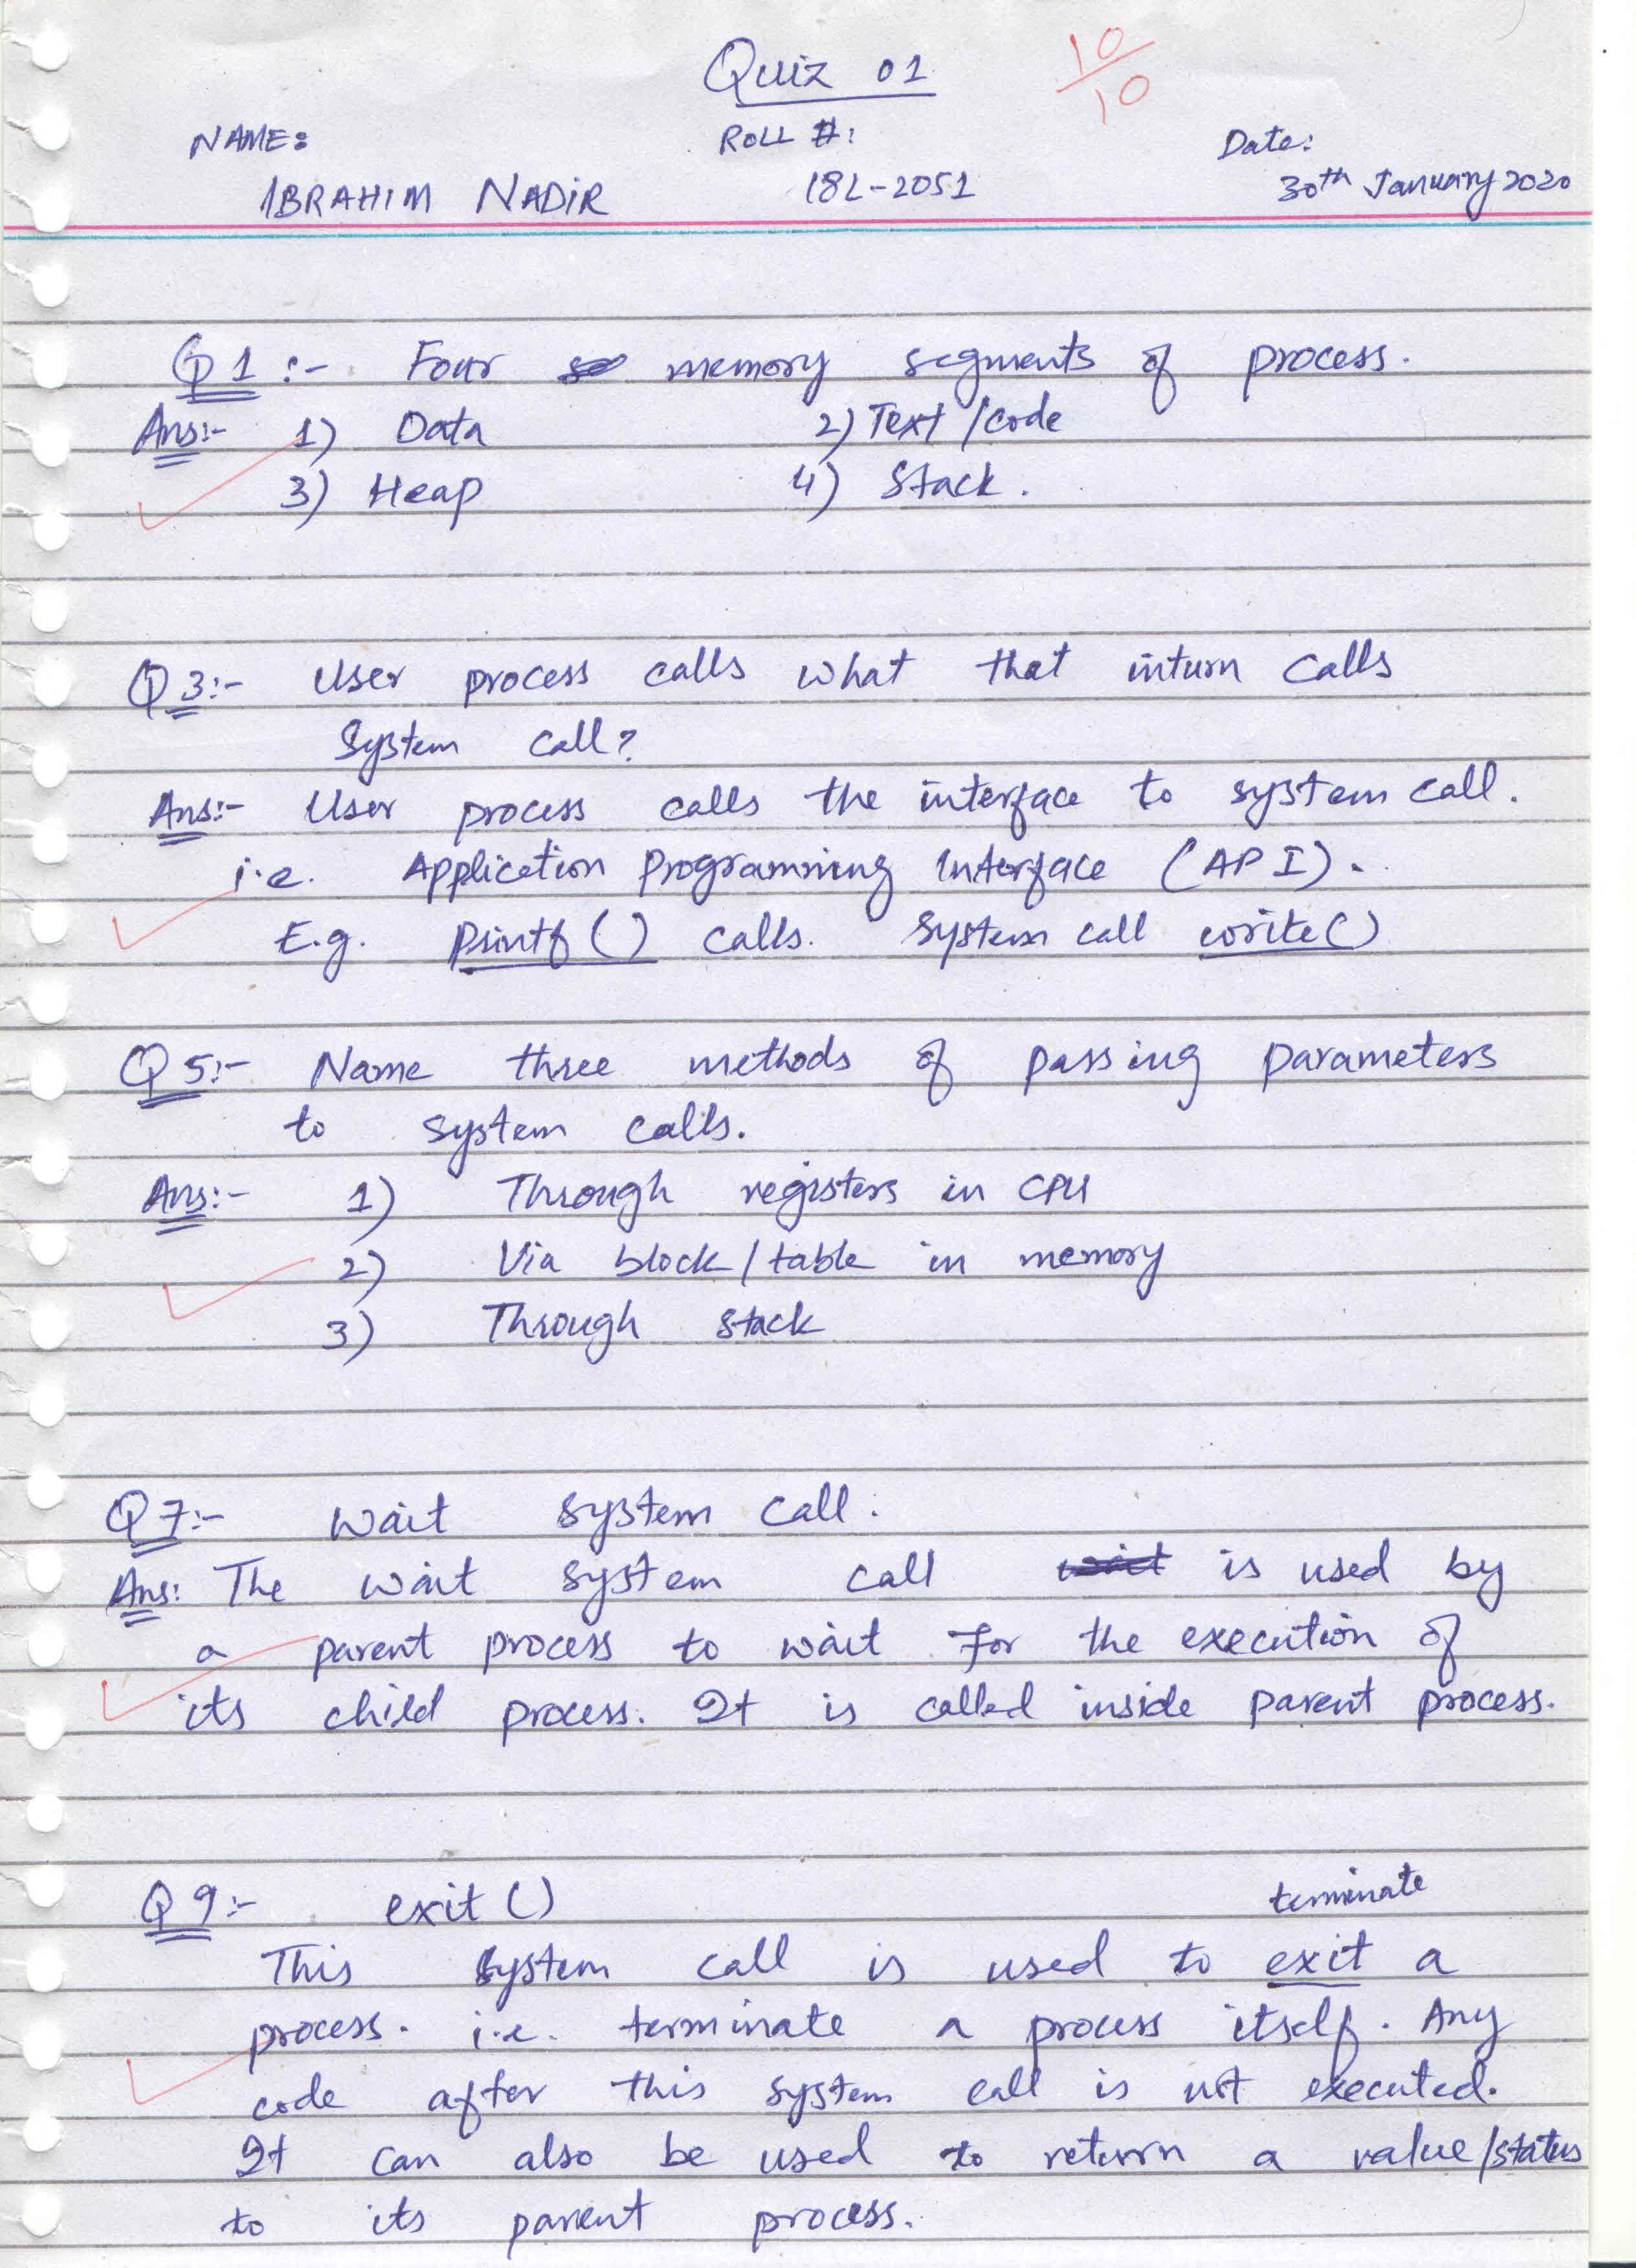 Quiz 01
10/10
NAME: ROLL #: Date:
IBRAHIM NADIR 18L-2051 30th January 2020
Q1:- Four memory segments of process.
Ans:- 1) Data 2) Text/code
3) Heap 4) Stack.
Q3:- User process calls what that inturn calls
System call?
Ans:- User process calls the interface to system call.
i.e. Application Programming Interface (API).
E.g. printf() calls. System call write()
Q5:- Name three methods of passing parameters
to system calls.
Ans:- 1) Through registers in CPU
2) Via block/table in memory
3) Through stack
Q7:- wait system call.
Ans: The wait system call wait is used by
a parent process to wait for the execution of
its child process. It is called inside parent process.
Q9:- exit()
terminate
This system call is used to exit a
process. i.e. terminate a process itself. Any
code after this system call is not executed.
It can also be used to return a value/status
to its parent process.